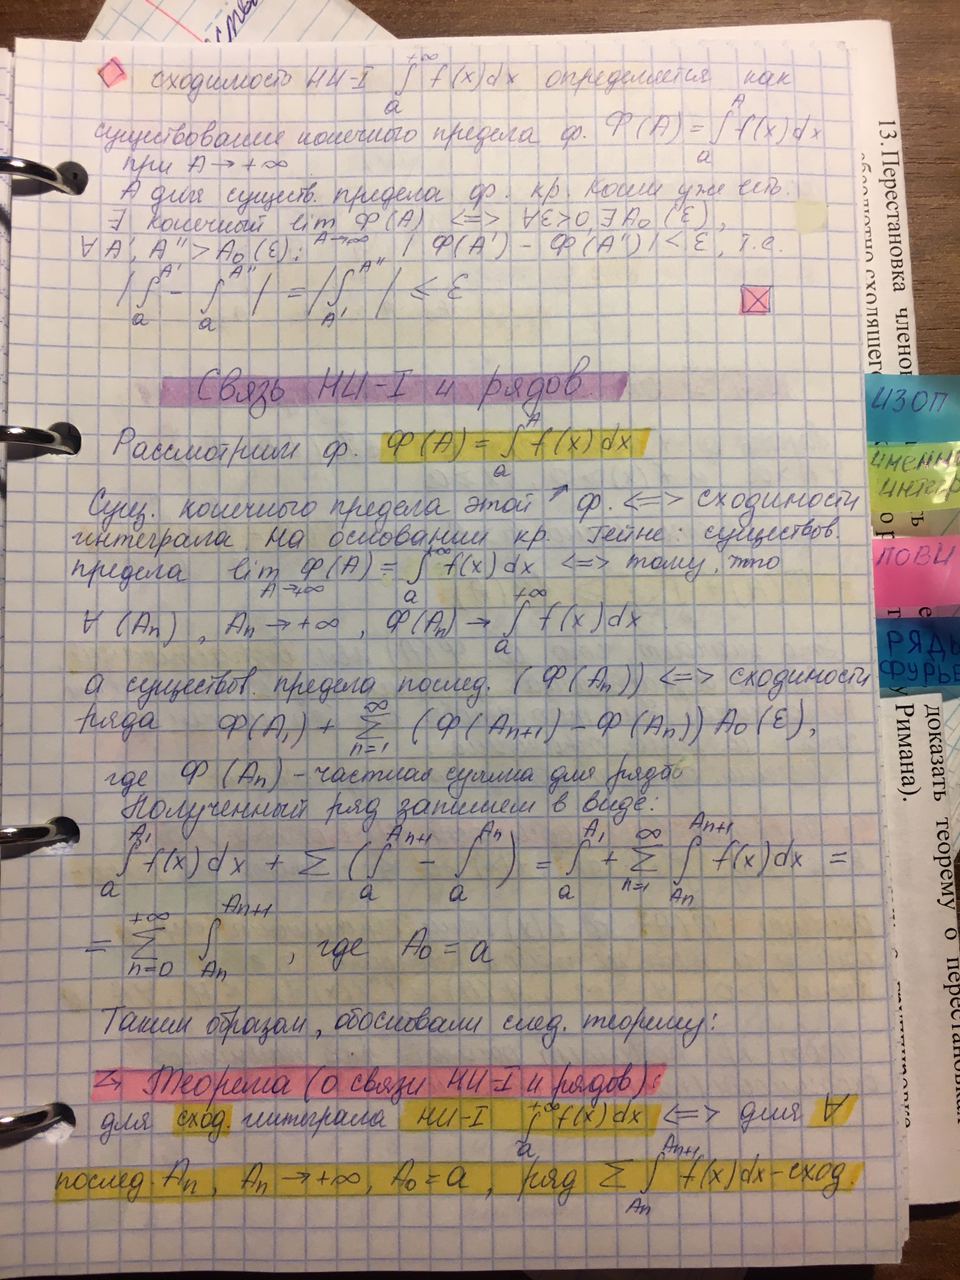 сходимость НИ-I ∫ₐ^{+∞} f(x)dx определяется как
существование конечного предела ф. Ф(A) = ∫ₐ^A f(x)dx
при A → +∞
А для существ. предела ф. кр. Коши уже есть.
∃ конечный lim_{A→∞} Ф(A) <=> ∀ε>0 ∃A₀(ε),
∀ A', A'' > A₀(ε): |Ф(A') - Ф(A'')| < ε, т.е.
|∫ₐ^{A'} - ∫ₐ^{A''}| = |∫_{A'}^{A''}| ≤ ε
Связь НИ-I и рядов.
Рассмотрим ф. Ф(A) = ∫ₐ^A f(x)dx
Сущ. конечного предела этой ф. <=> сходимости
интеграла на основании кр. Гейне: существов.
предела lim_{A→+∞} Ф(A) = ∫ₐ^{+∞} f(x)dx <=> тому, что
∀ (Aₙ), Aₙ → +∞, Ф(Aₙ) → ∫ₐ^{+∞} f(x)dx
а существов. предела послед. (Ф(Aₙ)) <=> сходимости
ряда Ф(A₁) + ∑_{n=1}^∞ (Ф(Aₙ₊₁) - Ф(Aₙ)) A₀(ε),
где Ф(Aₙ) - частная сумма для рядов
Полученный ряд запишем в виде:
∫ₐ^{A₁} f(x)dx + ∑ (∫ₐ^{Aₙ₊₁} - ∫ₐ^{Aₙ}) = ∫ₐ^{A₁} + ∑_{n=1}^∞ ∫_{Aₙ}^{Aₙ₊₁} f(x)dx =
= ∑_{n=0}^{+∞} ∫_{Aₙ}^{Aₙ₊₁}, где A₀ = a
Таким образом, обосновали след. теорему:
Теорема (о связи НИ-I и рядов):
для сход. интеграла НИ-I ∫ₐ^{+∞} f(x)dx <=> для ∀
послед. Aₙ, Aₙ → +∞, A₀ = a, ряд ∑ ∫_{Aₙ}^{Aₙ₊₁} f(x)dx - сход.
13. Перестановка членов
сходящего
ИЗОП
интегр
ПОВИ
РЯДЫ
ФУРЬЕ
доказать теорему о перестановках
Римана).